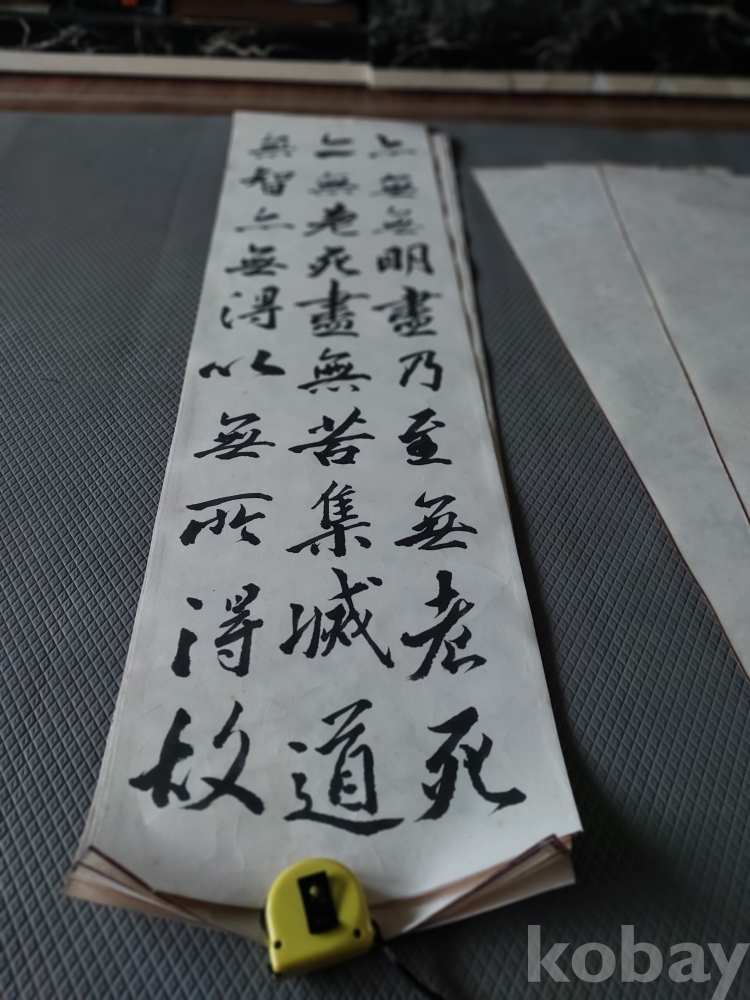 亦無無明盡乃至無老死
亦無老死盡無苦集滅道
無智亦無得以無所得故
kobay